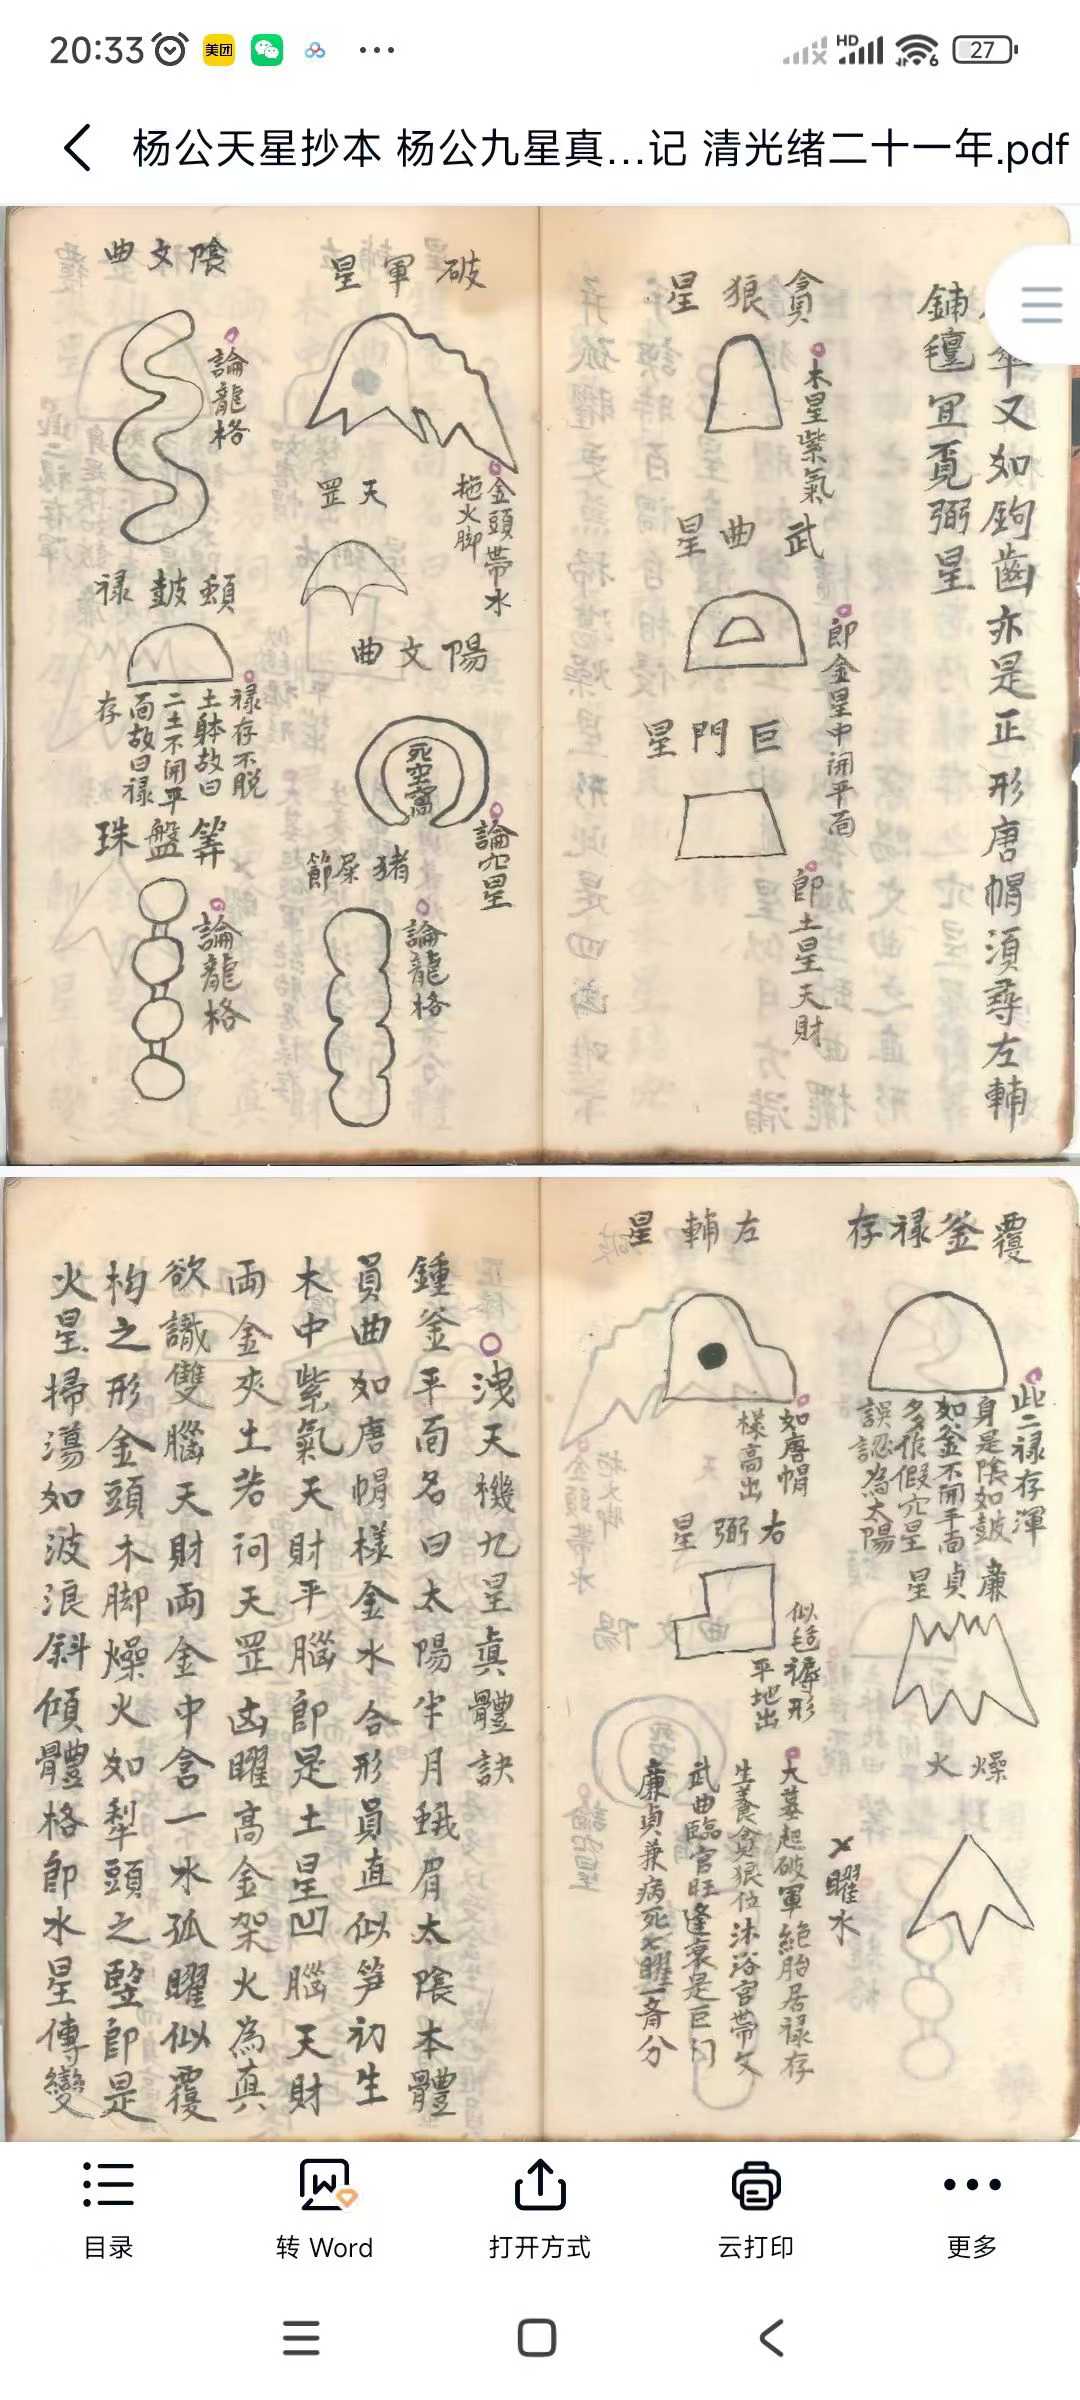 20:33
美团
HD
6
27
杨公天星抄本 杨公九星真...记 清光绪二十一年.pdf
又如鉤齒亦是正形唐帽須尋左輔
鋪氊宜覓弼星
貪狼星
木星紫氣
武曲星
即金星中開平面
巨門星
即土星天財
破軍星
金頭帶水
拖火脚
天罡
陽文曲
死空窩
論穴星
猪屎節
論龍格
陰文曲
論龍格
頼鼓禄
禄存不脱
土躰故曰
二土不開平
面故曰禄
存
筭盤珠
論龍格
覆釜禄存
此二禄存渾
身是陰如鼓
如釜不開平面
多作假穴星
誤認為太陽
廉貞星
燥火
左輔星
如唐帽
樣高出
右弼星
似毡褥形
平地出
曜水
大墓起破軍絶胎居禄存
生養貪狼位沐浴官帶文
武曲臨官旺逢衰是巨门
廉貞兼病死七曜一斉分
洩天機九星真體訣
鍾釜平面名曰太陽半月蛾眉太陰本體
員曲如唐帽樣金水合形員直似笋初生
木中紫氣天財平腦即是土星凹腦天財
両金夾土若问天罡凶曜高金架火為真
欲識雙腦天財両金中含一水孤曜似覆
杓之形金頭木脚燥火如犁頭之竪即是
火星掃蕩如波浪斜傾體格即水星傳變
目录
转 Word
打开方式
云打印
更多